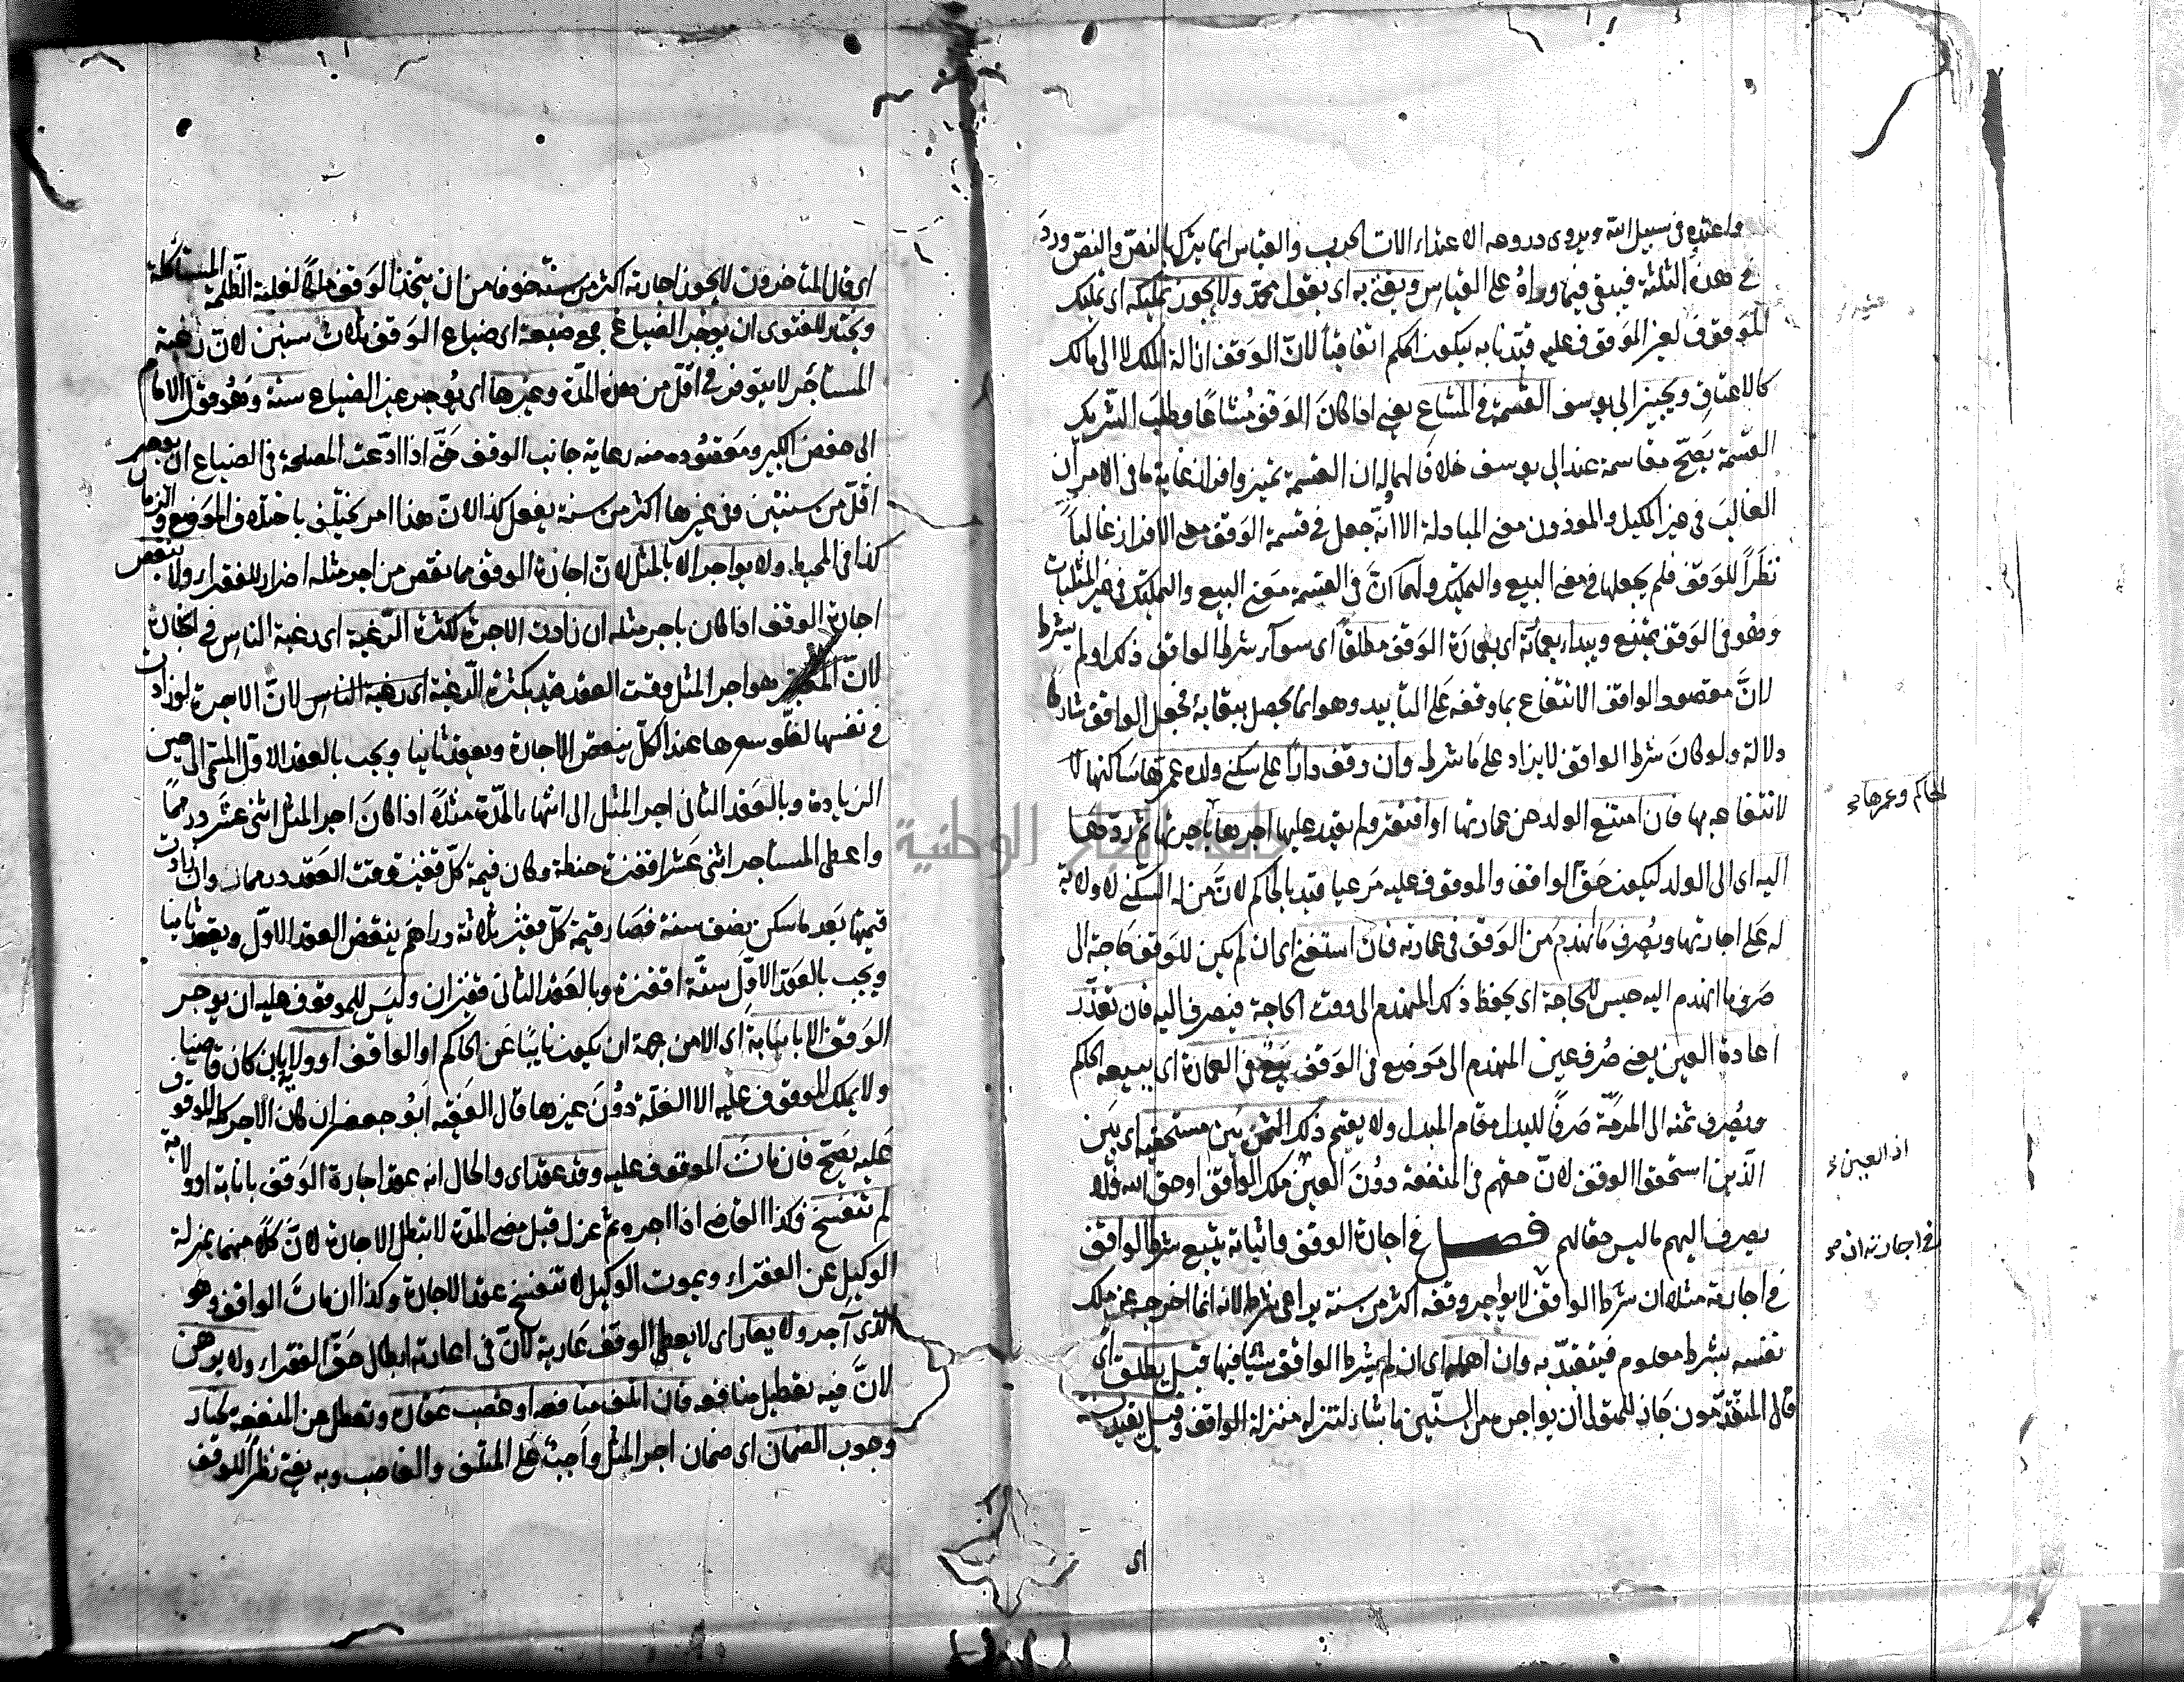 واعتده في سبيل الله ويروى دروعه الاعتداء الات الحرب والقياس انما يترك بالنص والنص ورد
في هذه الثلثة فيبقى فيما وراه على القياس ويفتى به اى بقول محمد ولا يجوز تمليكه اى تمليك
الموقوف لغير الموقوف عليه قيدنا به ليكون الحكم اتفاقيا لان الوقف ازالة الملك لا الى مالك
كالاعتاق ويجيز ابي يوسف القسمة في المشاع يعني اذا كان الوقف مشاعا وطلب الشريك
القسمة يصح مقاسمة عند ابي يوسف خلافا لهما له ان القسمة تميز وافراز غاية ما في الامر ان
الغالب في غير المكيل والموزون معنى المبادلة الا انه جعل في قسمة الوقف معنى الافراز غالبا
نظرا للوقف فلم يجعلها في معنى البيع والتمليك ولهما ان في القسمة معنى البيع والتمليك في غير المثليات
وهو في الوقف يمتنع ويبداء بعمارته اى بعمارة الوقف مطلقا اى سوآء شرط الواقف ذلك او لم يشرط
لان مقصود الواقف الانتفاع بما وقفه على التابيد وهو انما يحصل ببقايه فجعل الواقف شارطا
دلالة ولو كان شرط الواقف لا يزاد على ما شرط وان وقف دارا على سكنى ولده عمرها ساكنها لا
لانتفاعه بها فان امتنع الولد عن عمارتها او افتقر ولم يقدر عليها اجرها باجرتها ثم ردها
الحاكم وعمرها
اليه اى الى الولد ليكون حق الواقف والموقوف عليه مرعيا قيد بالحاكم لان من له السكنى لا ولاية
له على اجارتها ويصرف ما انهدم من الوقف في عمارته فان استغنى اى ان لم يكن للوقف حاجة الى
صرف ما انهدم اليه حبس للحاجة اى يحفظ ذلك المنهدم الى وقت الحاجة فيصرف اليه فان تعذر
اعادة العين يعني صرف عين المنهدم الى موضع في الوقف بيع في العمارة اى يبيعه الحاكم
ويصرف ثمنه الى المرمة صرفا للبدل مقام المبدل ولا يقسم ذلك الثمن بين مستحقيه اى بين
الذين استحقوا الوقف لان حقهم في المنفعة دون العين ملك الواقف او حق الله فلا
اذ العين
يصرف اليهم ما ليس حقا لهم فصل في اجارة الوقف واثباته يتبع شرط الواقف
في اجارته ان
في اجارته مثلا ان شرط الواقف لا يؤاجر وقفه اكثر من سنة يراعى شرطه لانه انما اخرجه عن ملك
نفسه بشرط معلوم فيتقيد به وان اهمله اى ان لم يشرط الواقف شيئا فيها قيل يطلق اى
قال المتقدمون جاز للمتولى ان يواجر من السنين ما شاء لتنزله منزلة الواقف وقيل يقيد بسنة
اى
اى قال المتاخرون لا يجوز اجارته اكثر من سنة خوفا من ان يتخذ الوقف ملكا لغلبة الظلمة المستأكلة
ويختار للفتوى ان يوجر الضياع جمع ضيعة اى ضياع الوقف ثلاث سنين لان رغبة
المستاجر لا يتوفر في اقل من هذه المدة وغيرها اى يوجر غير الضياع سنة وهو قول الامام
ابي حفص الكبير ومقصوده منه رعاية جانب الوقف حتى اذا ادعت المصلحة في الضياع ان يوجر
اقل من سنتين وفي غيرها اكثر من سنة يفعل كذا لان هذا امر يختلف باختلاف الموضع والزمان
كذا في المحيط ولا يواجر الا بالمثل لان اجارة الوقف بما نقص من اجر مثله اضرار للفقراء ولا ينقض
اجارة الوقف اذا كان باجر مثله ان زادت الاجرة لكثرة الرغبة اى رغبة الناس في اجارة
لان المعتبر هو اجر المثل وقت العقد قيد بكثرة الرغبة اى رغبة الناس لان الاجرة لو زادت
في نفسها لغلو سعرها عند الكل ينقض الاجارة ويعقد ثانيا ويجب بالعقد الاول المسمى الى حين
الزيادة وبالعقد الثانى اجر المثل الى انتهاء المدة مثلا اذا كان اجر المثل اثنى عشر درهما
واعطى المستاجر اثنى عشر اقفزة حنطة وكان قيمة كل قفيز وقت العقد درهما وان زادت
قيمتها بعد ما سكن نصف سنة فصار قيمة كل قفيز ثلاثة دراهم ينقض العقد الاول ويعقد ثانيا
ويجب بالعقد الاول ستة اقفزة وبالعقد الثانى قفيزان وليس للموقوف عليه ان يوجر
الوقف الا بانابة اى الا من جهة ان يكون نايبا عن الحاكم او الواقف او ولاية بان كان قاضيا
ولا يملك الموقوف عليه الا الغلة دون غيرها قال الفقيه ابو جعفر ان كان الاجر كله للموقوف
عليه يصح فان مات الموقوف عليه وقد عقد اى والحال انه عقد اجارة الوقف بانابة او ولاية
لم تنفسخ فكذا القاضى اذا اجره ثم عزل قبل مضى المدة لا يبطل الاجارة لان كلا منهما بمنزلة
الوكيل عن الفقراء وبموت الوكيل لا تنفسخ عقد الاجارة وكذا ان مات الواقف وهو
الذى آجر ولا يعار اى لا يعطى الوقف عارية لان في اعارته ابطال حق الفقراء ولا يرهن
لان فيه تعطيل منافعه فان اتلف منافعه او غصب عقاره وتعطل عن المنفعة يختار
وجوب الضمان اى ضمان اجر المثل واجب على المتلف والغاصب وبه يفتى نظرا للوقف